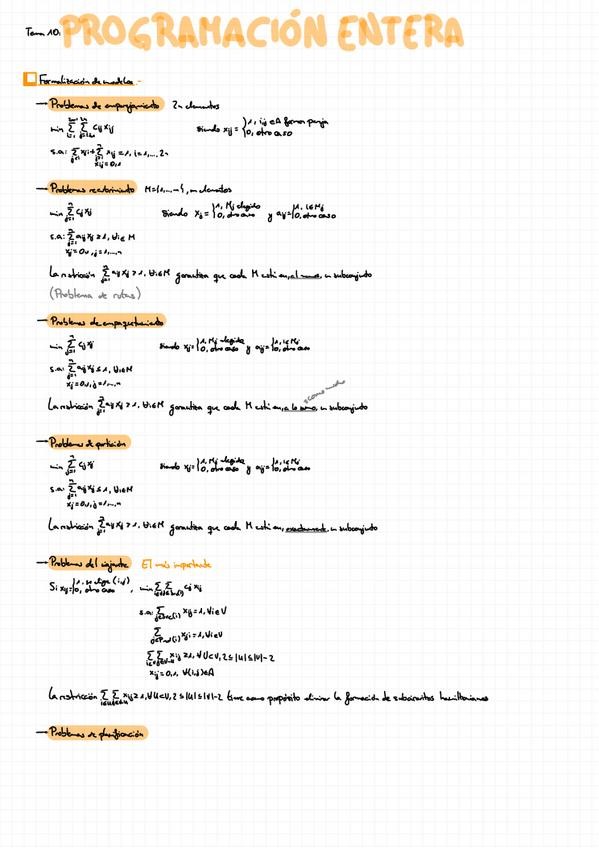 Tema 10: PROGRAMACIÓN ENTERA
Formalización de modelos
→ Problemas de emparejamiento 2n elementos
siendo xij = {1, i,j ∈ A forman pareja
0, otro caso
→ Problemas recubrimiento M={1,...m}, n elementos
min Σ cj xj siendo xj = {1, Mj elegido 0, otro caso y aij = {1, i∈Mj 0, otro caso
s.a: Σ aij xj ≥ 1, ∀i∈M
xj = 0,1, j=1,...,n
La restricción Σ aij xj ≥ 1, ∀i∈M garantiza que cada M esté en, al menos, un subconjunto
(Problema de rutas)
→ Problemas de empaquetamiento
min Σ cj xj siendo xj = {1, Mj elegido 0, otro caso y aij = {1, i∈Mj 0, otro caso
s.a: Σ aij xj ≤ 1, ∀i∈M
xj = 0,1, j=1,...,n
como mucho
La restricción Σ aij xj ≥ 1, ∀i∈M garantiza que cada M esté en, a lo sumo, un subconjunto
→ Problemas de partición
min Σ cj xj siendo xj = {1, Mj elegido 0, otro caso y aij = {1, i∈Mj 0, otro caso
s.a: Σ aij xj ≤ 1, ∀i∈M
xj = 0,1, j=1,...,n
La restricción Σ aij xj ≥ 1, ∀i∈M garantiza que cada M esté en, exactamente, un subconjunto
→ Problemas del viajante El más importante
Si xij = {1, se elige (i,j) 0, otro caso , min ΣΣ cij xij
xij = 1, ∀i∈V
xji = 1, ∀i∈V
ΣΣ xij ≥ 1, ∀U⊂V, 2≤|U|≤|V|-2
xij = 0,1, ∀(i,j)∈A
La restricción ΣΣ xij ≥ 1, ∀U⊂V, 2≤|U|≤|V|-2 tiene como propósito eliminar la formación de subcircuitos hamiltonianos
→ Problemas de planificación